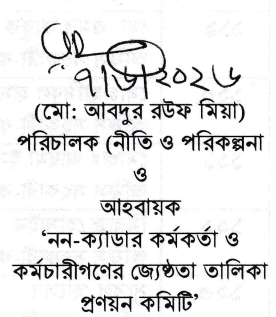 (মো: আবদুর রউফ মিয়া)
পরিচালক (নীতি ও পরিকল্পনা
ও
আহবায়ক
‘নন-ক্যাডার কর্মকর্তা ও
কর্মচারীগণের জ্যেষ্ঠতা তালিকা
প্রণয়ন কমিটি’